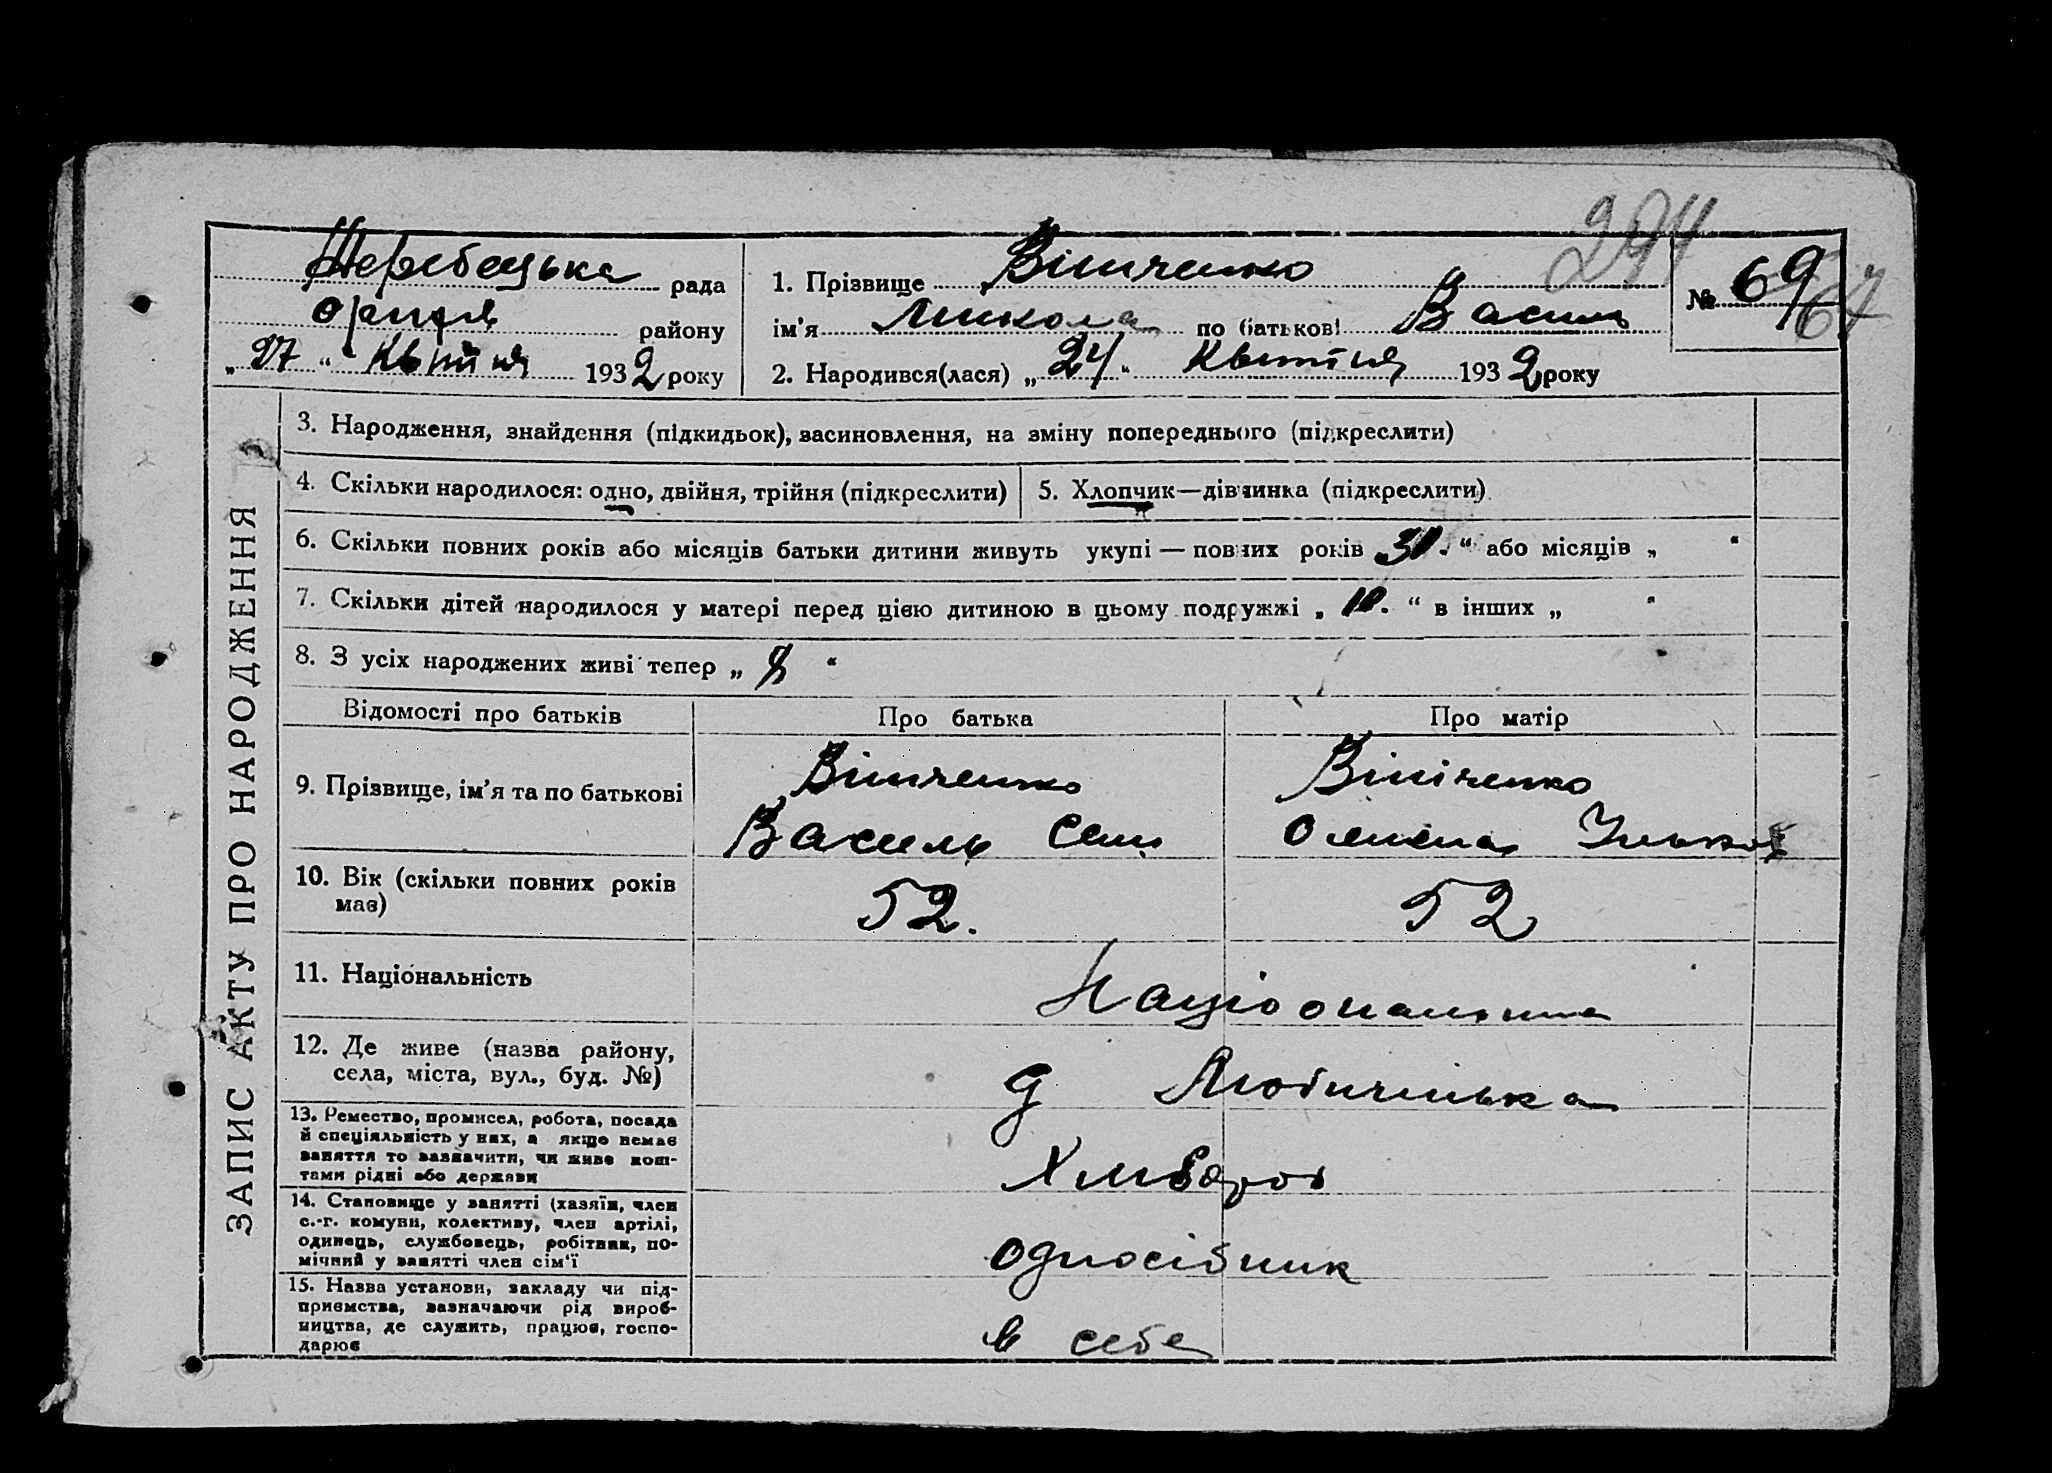 294
Жеребецька рада
Оріхів району
„27“ Квітня 1932 року
1. Прізвище Віниченко
ім'я Микола по батькові Васил
2. Народився(лася) „24“ Квітня 1932 року
№ 69
67
ЗАПИС АКТУ ПРО НАРОДЖЕННЯ
3. Народження, знайдення (підкидьок), засиновлення, на зміну попереднього (підкреслити)
4. Скільки народилося: одно, двійня, трійня (підкреслити)
5. Хлопчик—дівчинка (підкреслити)
6. Скільки повних років або місяців батьки дитини живуть укупі — повних років „ “ або місяців „ “
7. Скільки дітей народилося у матері перед цією дитиною в цьому подружжі „10.“ в інших „ “
8. З усіх народжених живі тепер „ “
Відомості про батьків Про батька Про матір
9. Прізвище, ім'я та по батькові
Віниченко
Василь Сем
Вініченко
Олена Ильков
10. Вік (скільки повних років має)
52. 52
11. Національність
Націоональна
12. Де живе (назва району,
села, міста, вул., буд. №)
13. Ремество, промисел, робота, посада
й спеціяльність у них, а якщо немає
заняття то зазначити, чи живе кош-
тами рідні або держави
Хлибороб
14. Становище у занятті (хазяїн, член
с.-г. комуни, колективу, член артілі,
одинець, службовець, робітник, по-
мічний у занятті член сім'ї
односібник
15. Назва установи, закладу чи під-
приємства, зазначаючи рід вироб-
ництва, де служить, працює, госпо-
дарює
в себе